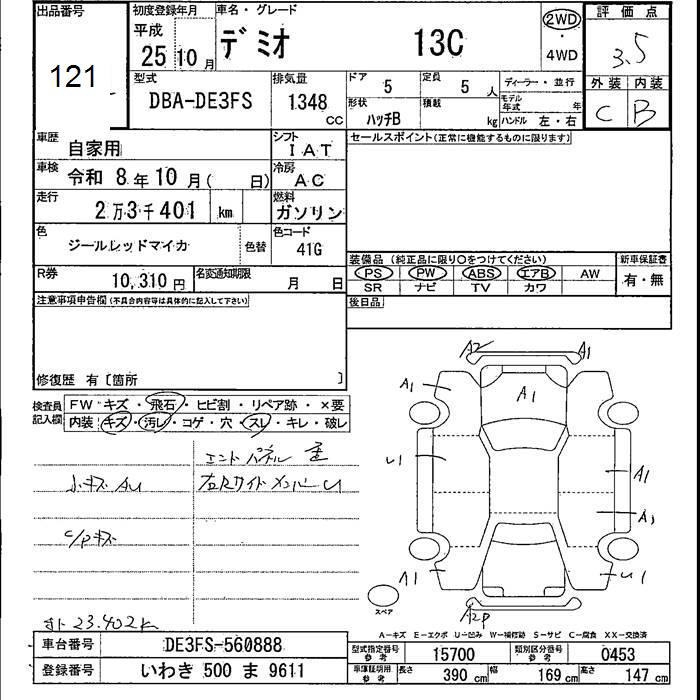 出品番号
121
初度登録年月
平成
25 10 月
車名・グレード
デミオ 13C
2WD
・
4WD
評価点
3.5
外装 内装
C B
型式
DBA-DE3FS
排気量
1348 CC
ドア 5
定員 5 人
形状 ハッチB
積載 kg
ディーラー・並行
モデル年式 年
ハンドル 左・右
車歴 自家用
シフト IAT
車検 令和 8 年 10 月( 日)
冷房 AC
走行 2万3千401 km
燃料 ガソリン
色 ジールレッドマイカ 色替
色コード 41G
R券 10,310 円
名変通知期限 月 日
セールスポイント(正常に機能するものに限ります)
装備品(純正品に限り○をつけてください)
PS PW ABS エアB AW
SR ナビ TV カワ
新車保証書
有・無
後日品
注意事項申告欄(不具合内容等は具体的に記入して下さい)
修復歴 有〔箇所 〕
検査員記入欄
FW キズ・飛石・ヒビ割・リペア跡・×要
内装 キズ・汚レ・コゲ・穴・スレ・キレ・破レ
エンドパネル
小キズ AU
右Rサイドメンバー U
C/Pキズ
23.402K
A2 A1
A1 A1
U1 A1
A1
A1 U1
A2P
スペア
A-キズ E-エクボ U-凹み W-補修跡 S-サビ C-腐食 XX-交換済
車台番号 DE3FS-560888
登録番号 いわき 500 ま 9611
型式指定番号 参考 15700
類別区分番号 参考 0453
車庫証明用 参考
長さ 390 cm
幅 169 cm
高さ 147 cm